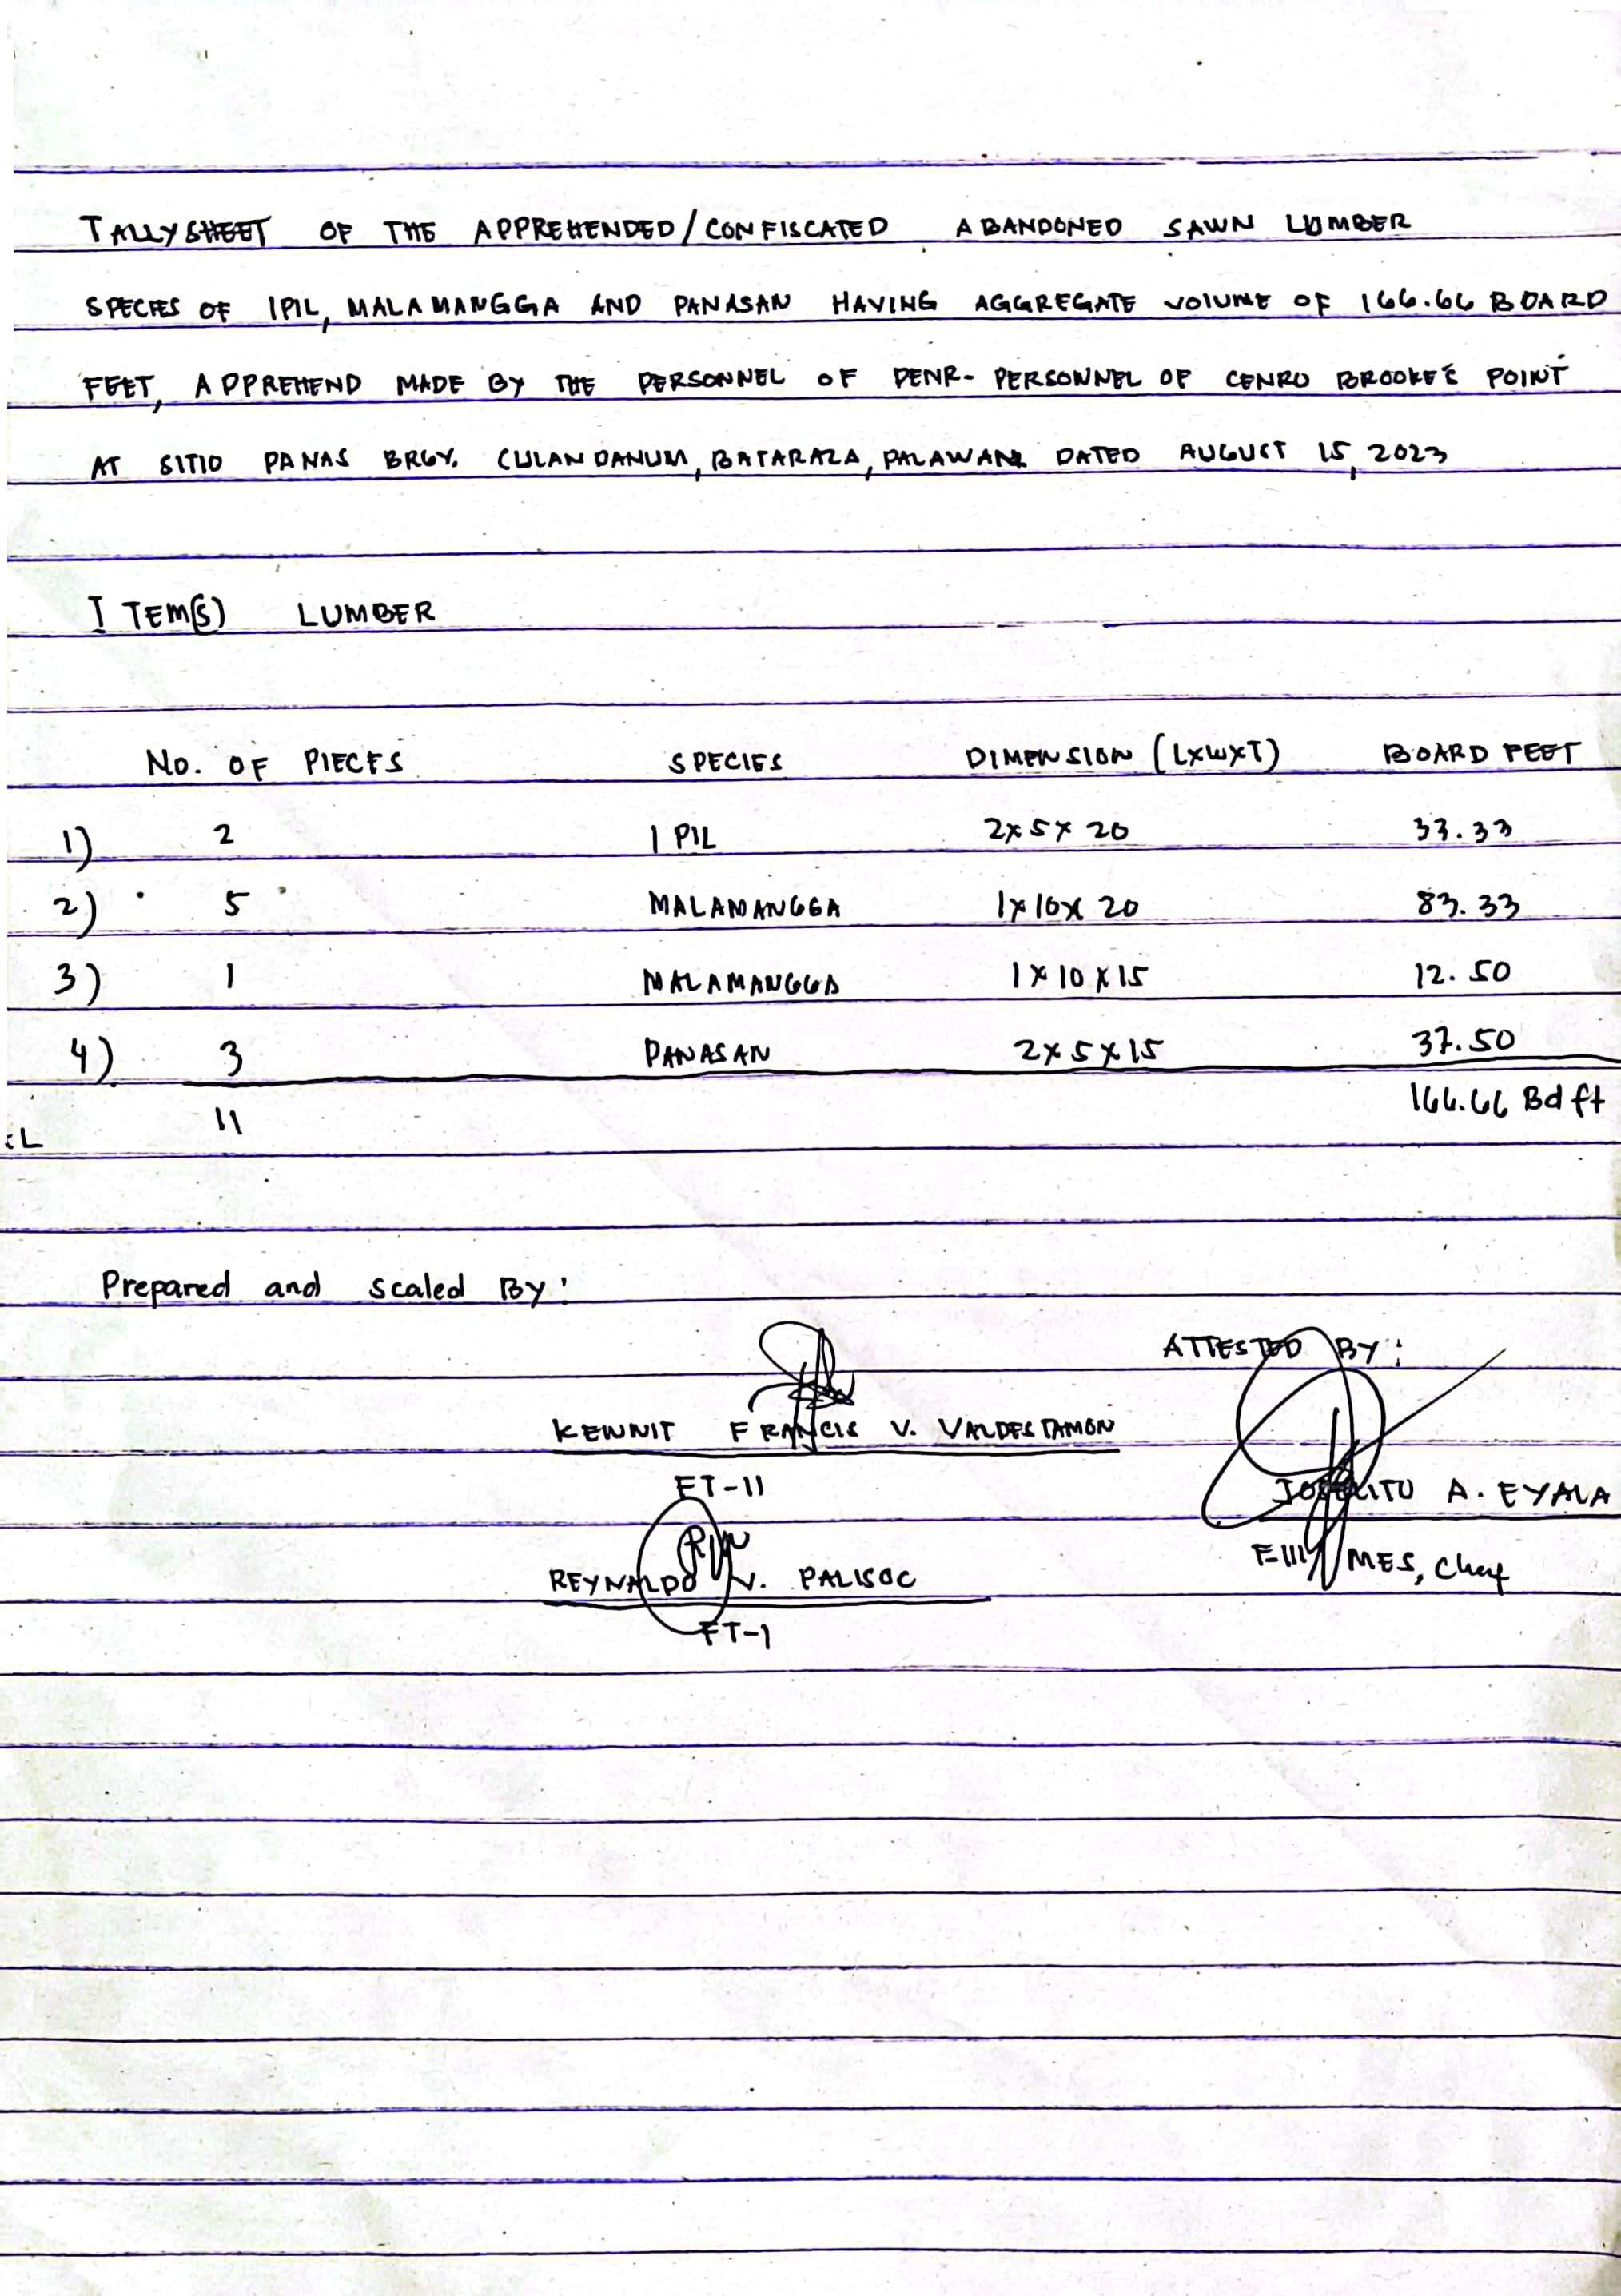 TALLYSHEET OF THE APPREHENDED/CONFISCATED ABANDONED SAWN LUMBER
SPECIES OF IPIL, MALAMANGGA AND PANASAN HAVING AGGREGATE VOLUME OF 166.66 BOARD
FEET, APPREHEND MADE BY THE PERSONNEL OF DENR- PERSONNEL OF CENRO BROOKE'S POINT
AT SITIO PANAS BRGY. CULANDANUM, BATARAZA, PALAWAN DATED AUGUST 15, 2023
ITEM(S) LUMBER
No. OF PIECES SPECIES DIMENSION (LxWxT) BOARD FEET
1) 2 IPIL 2x5x20 33.33
2) 5 MALAMANGGA 1x10x20 83.33
3) 1 MALAMANGGA 1x10x15 12.50
4) 3 PANASAN 2x5x15 37.50
11 166.66 Bd ft
Prepared and scaled By:
ATTESTED BY:
KENNIT FRANCIS V. VALDESTAMON
FT-II
JOSELITO A. EYALA
F-III/MES, Chief
REYNALDO V. PALISOC
FT-1